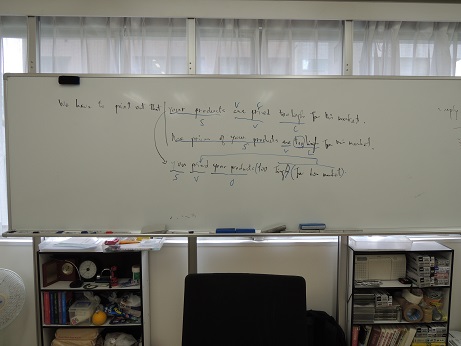 We have to point out that your products are priced too high for this market.
S V C
The prices of your products are too high for this market.
S V C
You priced your products too high (for this market).
S V O